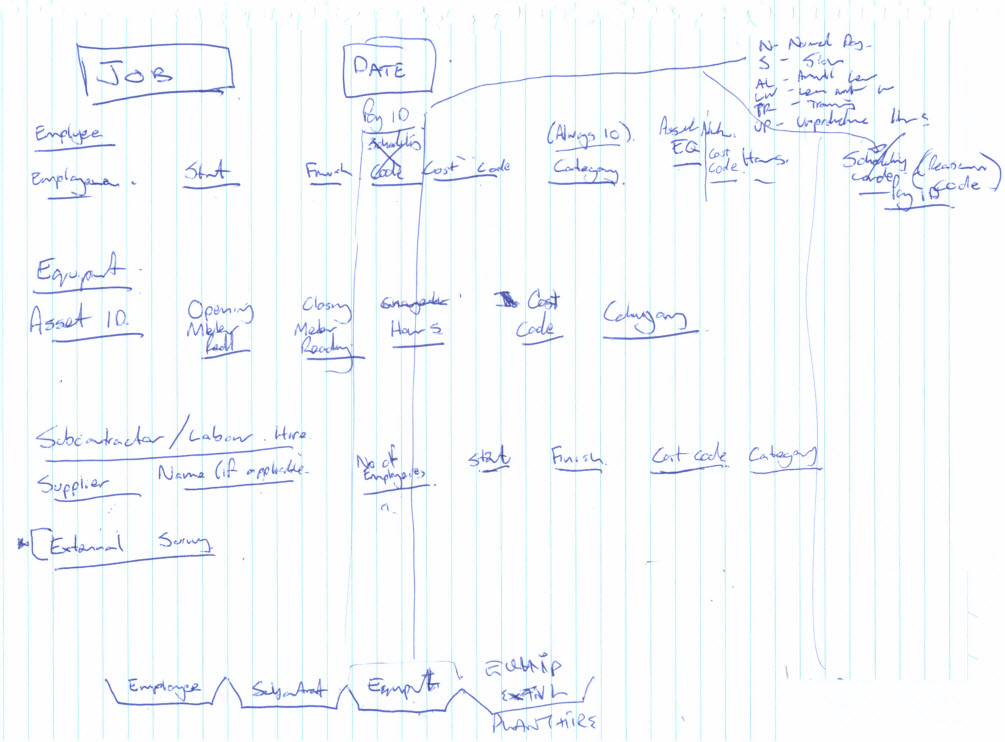 JOB
DATE
N - Normal Day
S - Slow
AL - Annual Leave
TR - Training
UP - Unproductive
Pay ID
Hours
Employee
(Always 10)
Asset
EQ
Cost
Code
Hours
Employee Start Finish Code Cost Code Category
Scheduling
Code
(Reason
Code)
Pay ID
Equipment
Asset ID Opening
Meter
Closing
Meter
Reading
Hours
Cost
Code
Category
Subcontractor / Labour Hire
Supplier Name (if applicable
No of
Employees
Start Finish Cost code Category
External Survey
Employee Subcontract Equipment EQUIP
EXTNL
PLANT HIRE